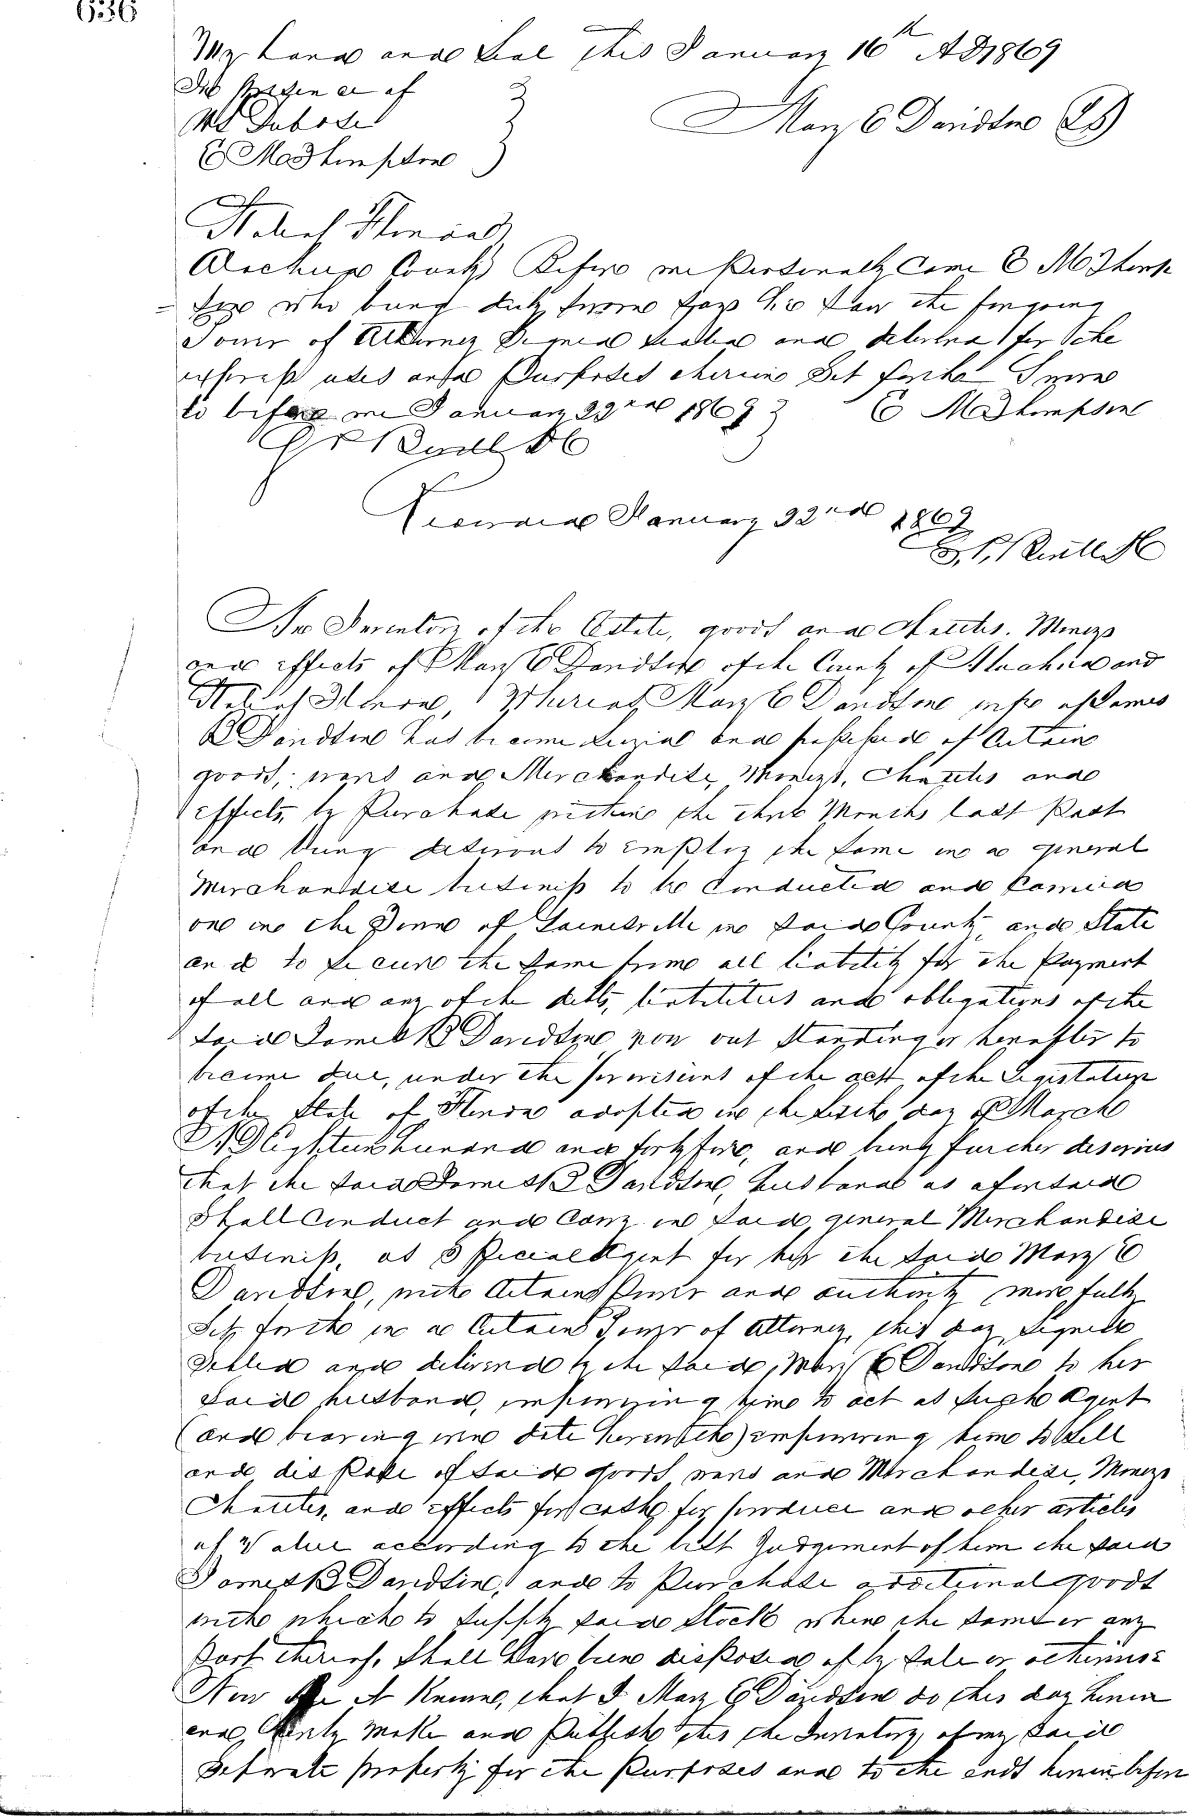 636
My hand and Seal this January 16th AD 1869
In presence of
Mary E Davidson (LS)
W Dubose
E M Thompson
State of Florida
Alachua County Before me Personally Came E M Thomp
= son who being duly sworn says he saw the forgoing
Power of Attorney Signed sealed and delivered for the
express uses and Purposes therein Set forth Sworn
to before me January 22nd 1869 E M Thompson
Recorded January 22nd 1869
An Inventory of the Estate, goods and Chattels. Moneys
and effects of Mary E Davidson of the County of Alachua and
State of Florida, Whereas Mary E Davidson wife of James
B Davidson has become seized and possessed of Certain
goods, wares and Merchandise, Moneys, Chattels and
effects, by Purchase within the three Months last Past
and being desirous to employ the same in a general
Merchandise business to be Conducted and Carried
on in the Town of Gainesville in said County and State
and to secure the same from all liability for the Payment
of all and any of the debts, liabilities and obligations of the
said James B Davidson now out standing or hereafter to
become due, under the provisions of the act of the Legislature
of the State of Florida adopted in the sixth day of March
AD Eighteen hundred and forty five, and being further desirous
that the said James B Davidson, husband as aforesaid
Shall Conduct and Carry on said general Merchandise
business, as Special Agent for her the said Mary E
Davidson, with Certain Power and authority more fully
Set forth in a Certain Power of Attorney, this day Signed
Sealed and delivered by the said, Mary E Davidson to her
said husband, empowering him to act as such Agent
(and bearing even date herewith) empowering him to Sell
and disPose of said goods, wares and Merchandise, Moneys
Chattels, and effects for cash, for produce and other articles
of Value according to the best Judgement of him the said
James B Davidson, and to Purchase additional goods
with which to supply said Stock when the same or any
Part thereof, shall have been disPosed of by sale or otherwise
Now be it Known, that I Mary E Davidson do this day herein
and hereby make and Publish this the Inventory, of my said
Separate property for the Purposes and to the ends herein before